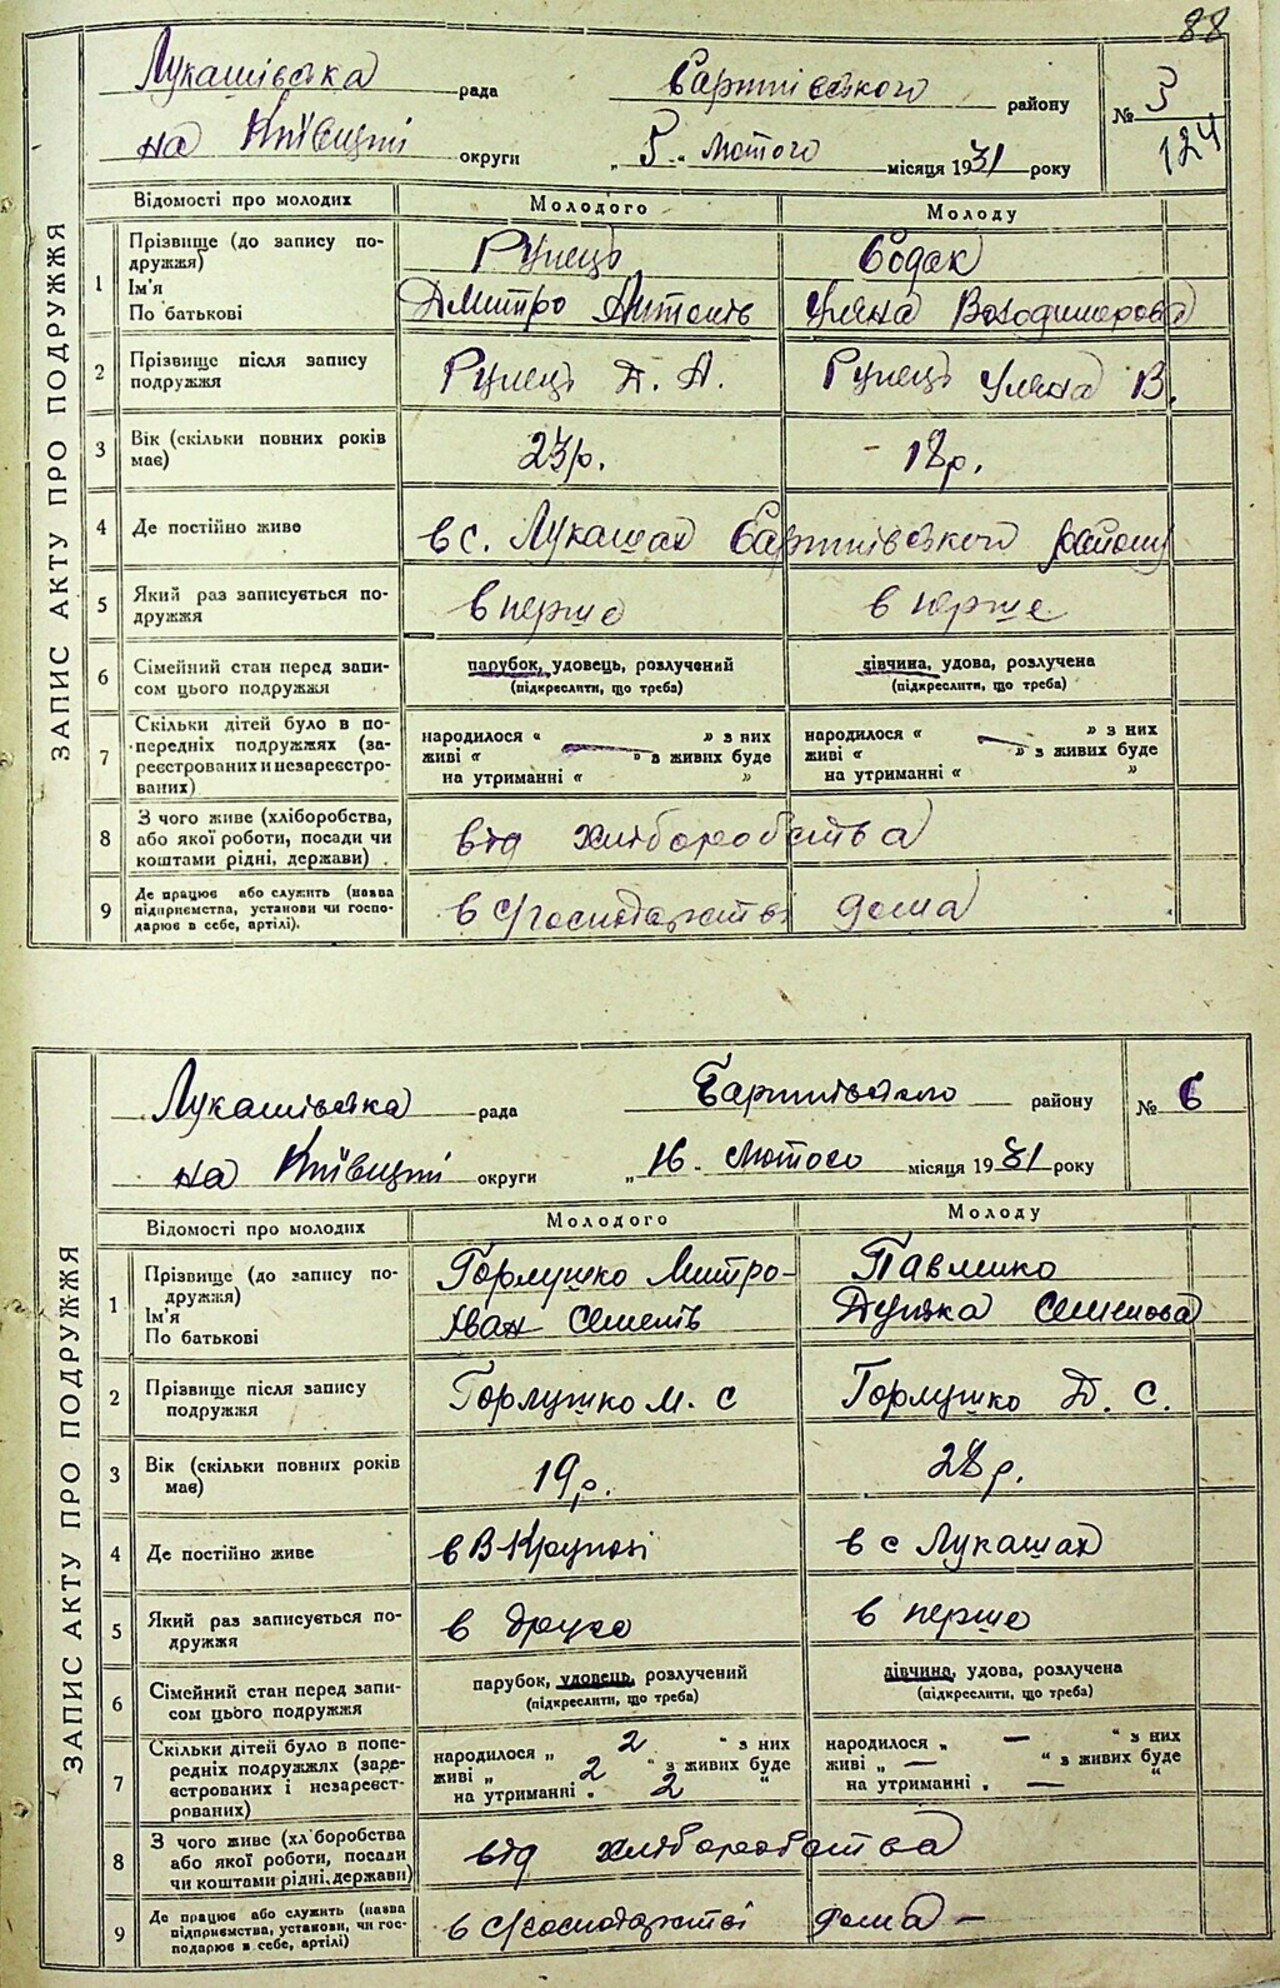 88
Лукашівська рада Баришівського району № 5
124
на Київщині округи „5“ Лютого місяця 1931 року
ЗАПИС АКТУ ПРО ПОДРУЖЖЯ
Відомості про молодих Молодого Молоду
1 Прізвище (до запису по-
дружжя)
Ім'я
По батькові
Рупець Бодак
Дмитро Антонів Уляна Володимерова
2 Прізвище після запису
подружжя
Рупець Д. А. Рупець Уляна В.
3 Вік (скільки повних років
має)
23р. 18р.
4 Де постійно живе в с. Лукашах Баришівського району
5 Який раз записується по-
дружжя
в перше в перше
6 Сімейний стан перед запи-
сом цього подружжя
парубок, удовець, розлучений дівчина, удова, розлучена
(підкреслити, що треба) (підкреслити, що треба)
7 Скільки дітей було в по-
передніх подружжях (за-
реєстрованих и незареєстро-
ваних)
народилося « » з них народилося « » з них
живі « » з живих буде живі « » з живих буде
на утриманні « » на утриманні « »
8 З чого живе (хліборобства,
або якої роботи, посади чи
коштами рідні, держави)
від хліборобства
9 Де працює або служить (назва
підприємства, установи чи госпо-
дарює в себе, артілі).
в с/господарстві дома
Лукашівська рада Баришівського району № 6
на Київщині округи „16. Лютого місяця 1931 року
ЗАПИС АКТУ ПРО ПОДРУЖЖЯ
Відомості про молодих Молодого Молоду
1 Прізвище (до запису по-
дружжя)
Ім'я
По батькові
Горлушко Митро- Павлико
Іван Семенів Дунька Семенова
2 Прізвище після запису
подружжя
Горлушко М. С Горлушко Д. С.
3 Вік (скільки повних років
має)
19р. 28р.
4 Де постійно живе в В Круполі в с Лукашах
5 Який раз записується по-
дружжя
в друге в перше
6 Сімейний стан перед запи-
сом цього подружжя
парубок, удовець, розлучений дівчина, удова, розлучена
(підкреслити, що треба) (підкреслити, що треба)
7 Скільки дітей було в попе-
редніх подружжях (заре-
єстрованих і незареєст-
рованих)
народилося „ 2 “ з них народилося „ — “ з них
живі „ 2 “ з живих буде живі „ — “ з живих буде
на утриманні „ 2 “ на утриманні „ — “
8 З чого живе (хліборобства
або якої роботи, посади
чи коштами рідні, держави)
від хліборобства
9 Де працює або служить (назва
підприємства, установи, чи гос-
подарює в себе, артілі)
в с/господарстві дома —